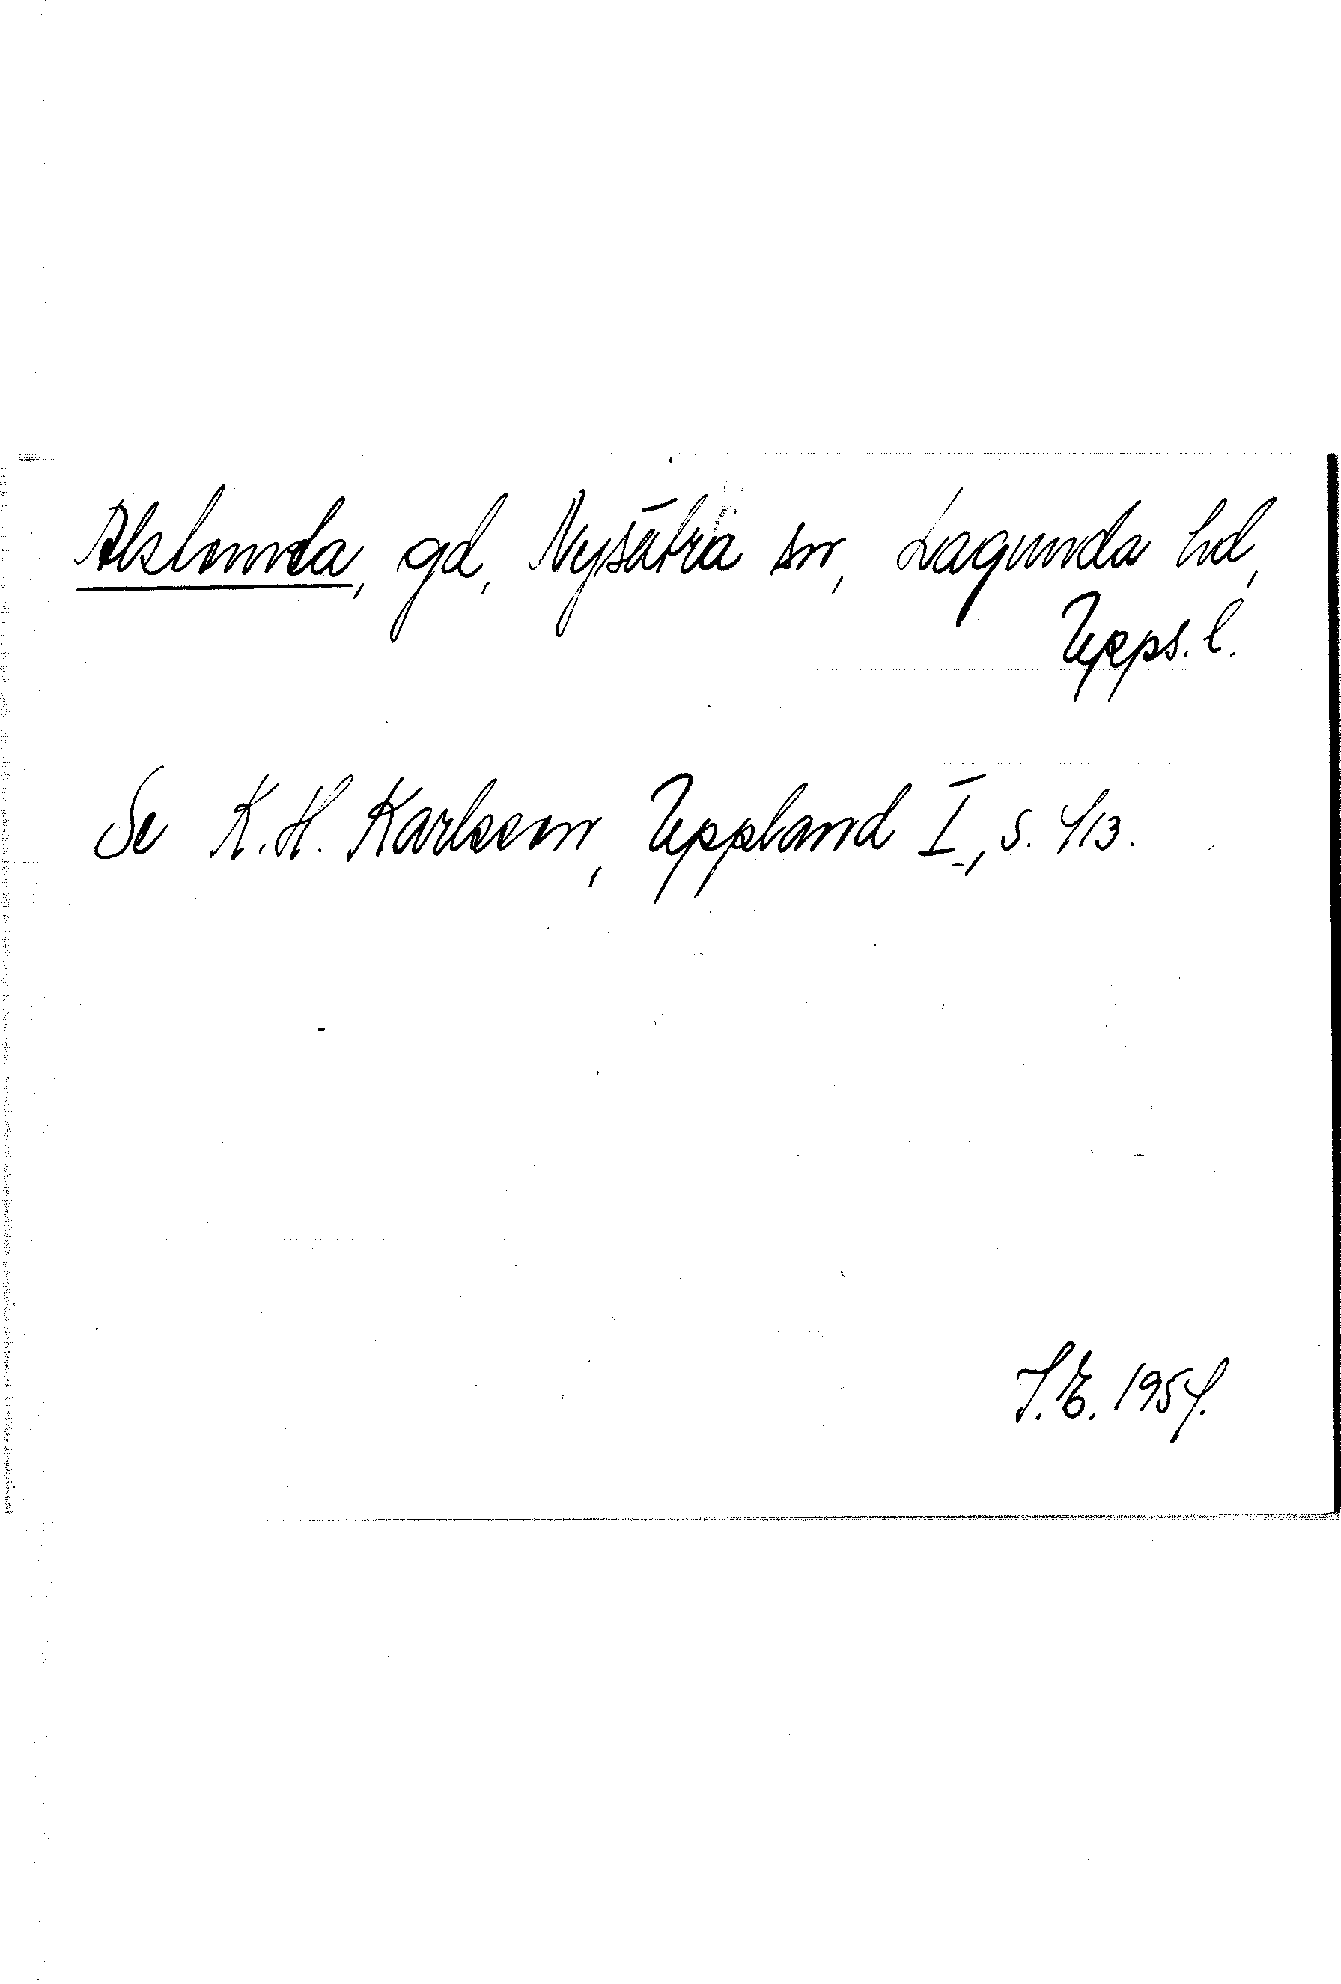 Alslunda, gd, Nysätra sn, Lagunda hd,
Upps. l.
Se K. H. Karlsson, Uppland I, s. 413.
S. E. 1954.